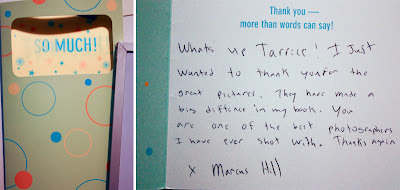 SO MUCH!
Thank you —
more than words can say!
Whats up Tarrice! I Just
wanted to thank you for the
great pictures. They have made a
big diffrence in my book. You
are one of the best photographers
I have ever shot with. Thanks again
x Marcus Hill